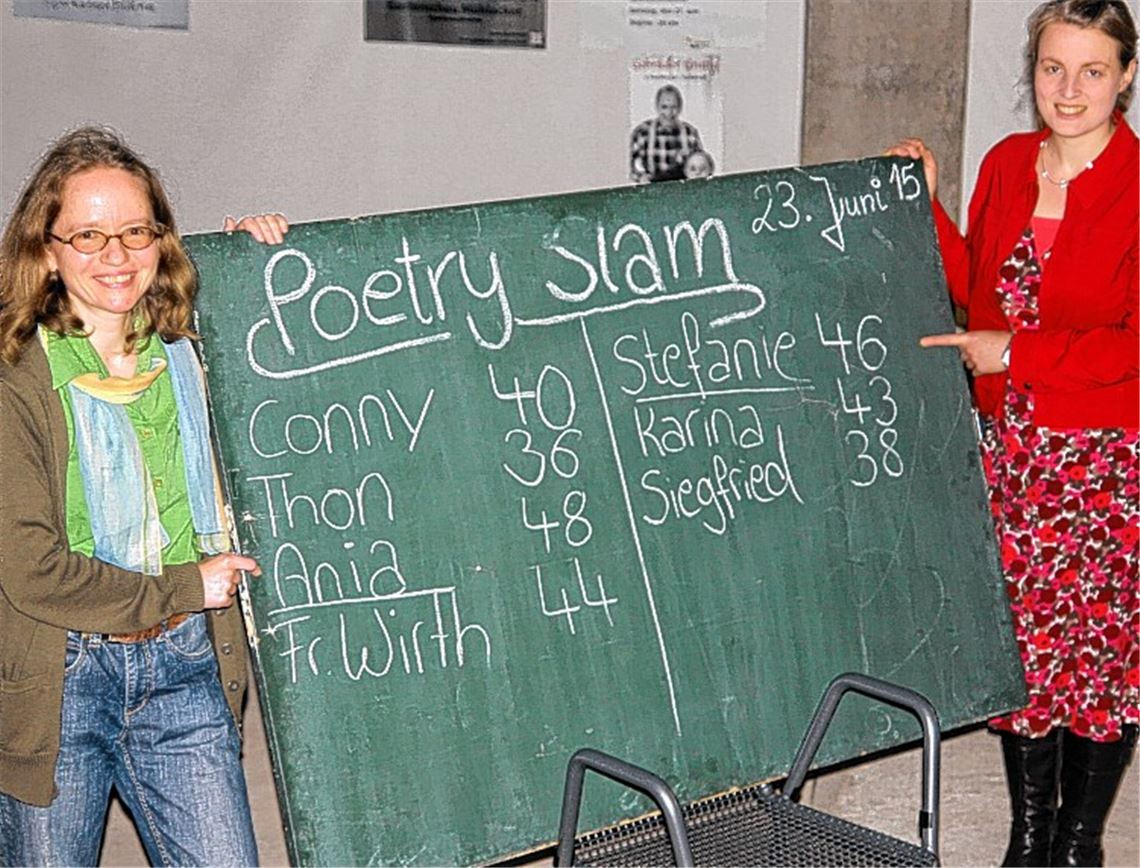 Poetry Slam
23. Juni 15
Conny 40
Thon 36
Ania 48
Fr. Wirth 44
Stefanie 46
Karina 43
Siegfried 38